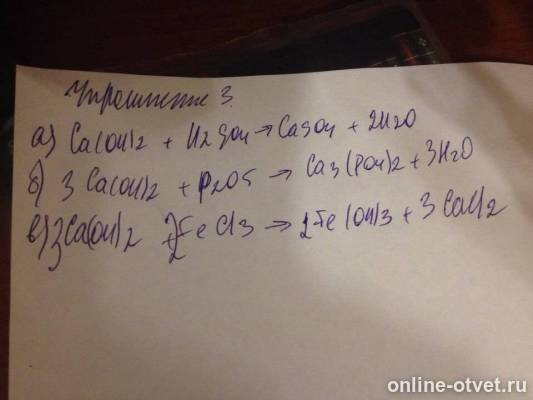 Упражнение 3.
а) Ca(OH)2 + H2SO4 → CaSO4 + 2H2O
б) 3 Ca(OH)2 + P2O5 → Ca3(PO4)2 + 3H2O
в) 3Ca(OH)2 + 2FeCl3 → 2Fe(OH)3 + 3CaCl2
online-otvet.ru